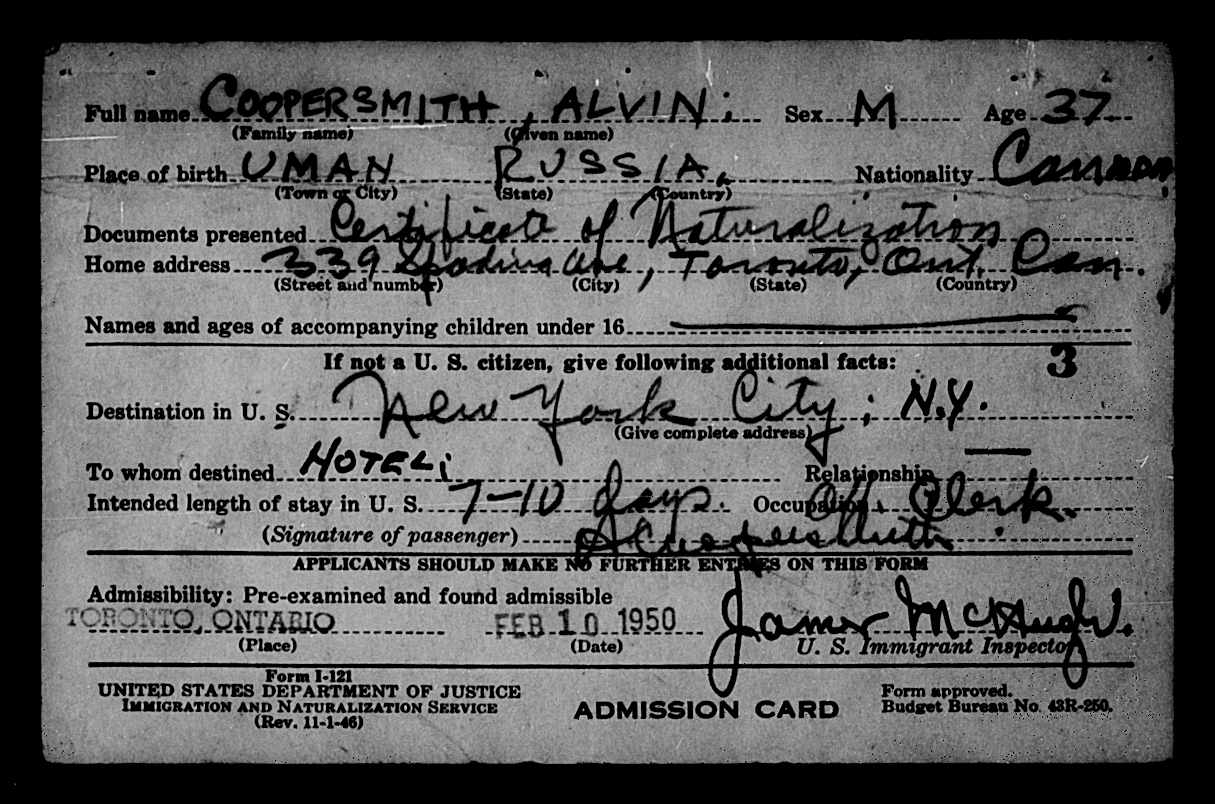 Full name COOPERSMITH, ALVIN; Sex M Age 37
(Family name) (Given name)
Place of birth UMAN RUSSIA, Nationality
(Town or City) (State) (Country)
Documents presented Certificate of Naturalization
Home address 339 Spadina Ave, Toronto, Ont. Can.
(Street and number) (City) (State) (Country)
Names and ages of accompanying children under 16
If not a U. S. citizen, give following additional facts: 3
Destination in U. S. New York City; N.Y.
(Give complete address)
To whom destined HOTEL; Relationship —
Intended length of stay in U. S. 7-10 days. Occupation Clerk.
(Signature of passenger) A Coopersmith
APPLICANTS SHOULD MAKE NO FURTHER ENTRIES ON THIS FORM
Admissibility: Pre-examined and found admissible
TORONTO, ONTARIO FEB 10 1950 James McHugh
(Place) (Date) U. S. Immigrant Inspector
Form I-121
UNITED STATES DEPARTMENT OF JUSTICE
IMMIGRATION AND NATURALIZATION SERVICE
(Rev. 11-1-46)
ADMISSION CARD
Form approved.
Budget Bureau No. 43R-250.